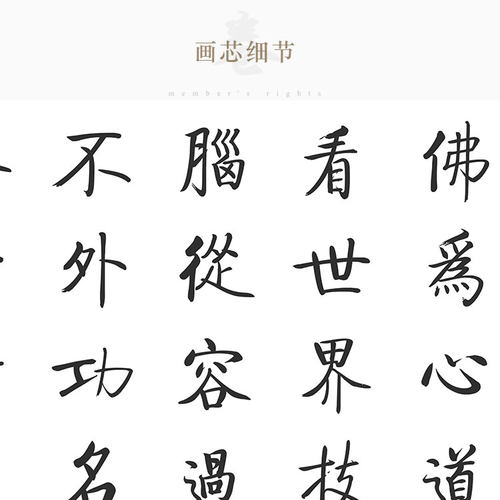 画芯细节
member's rights
佛為心道
看世界技
腦從容過
不外功名